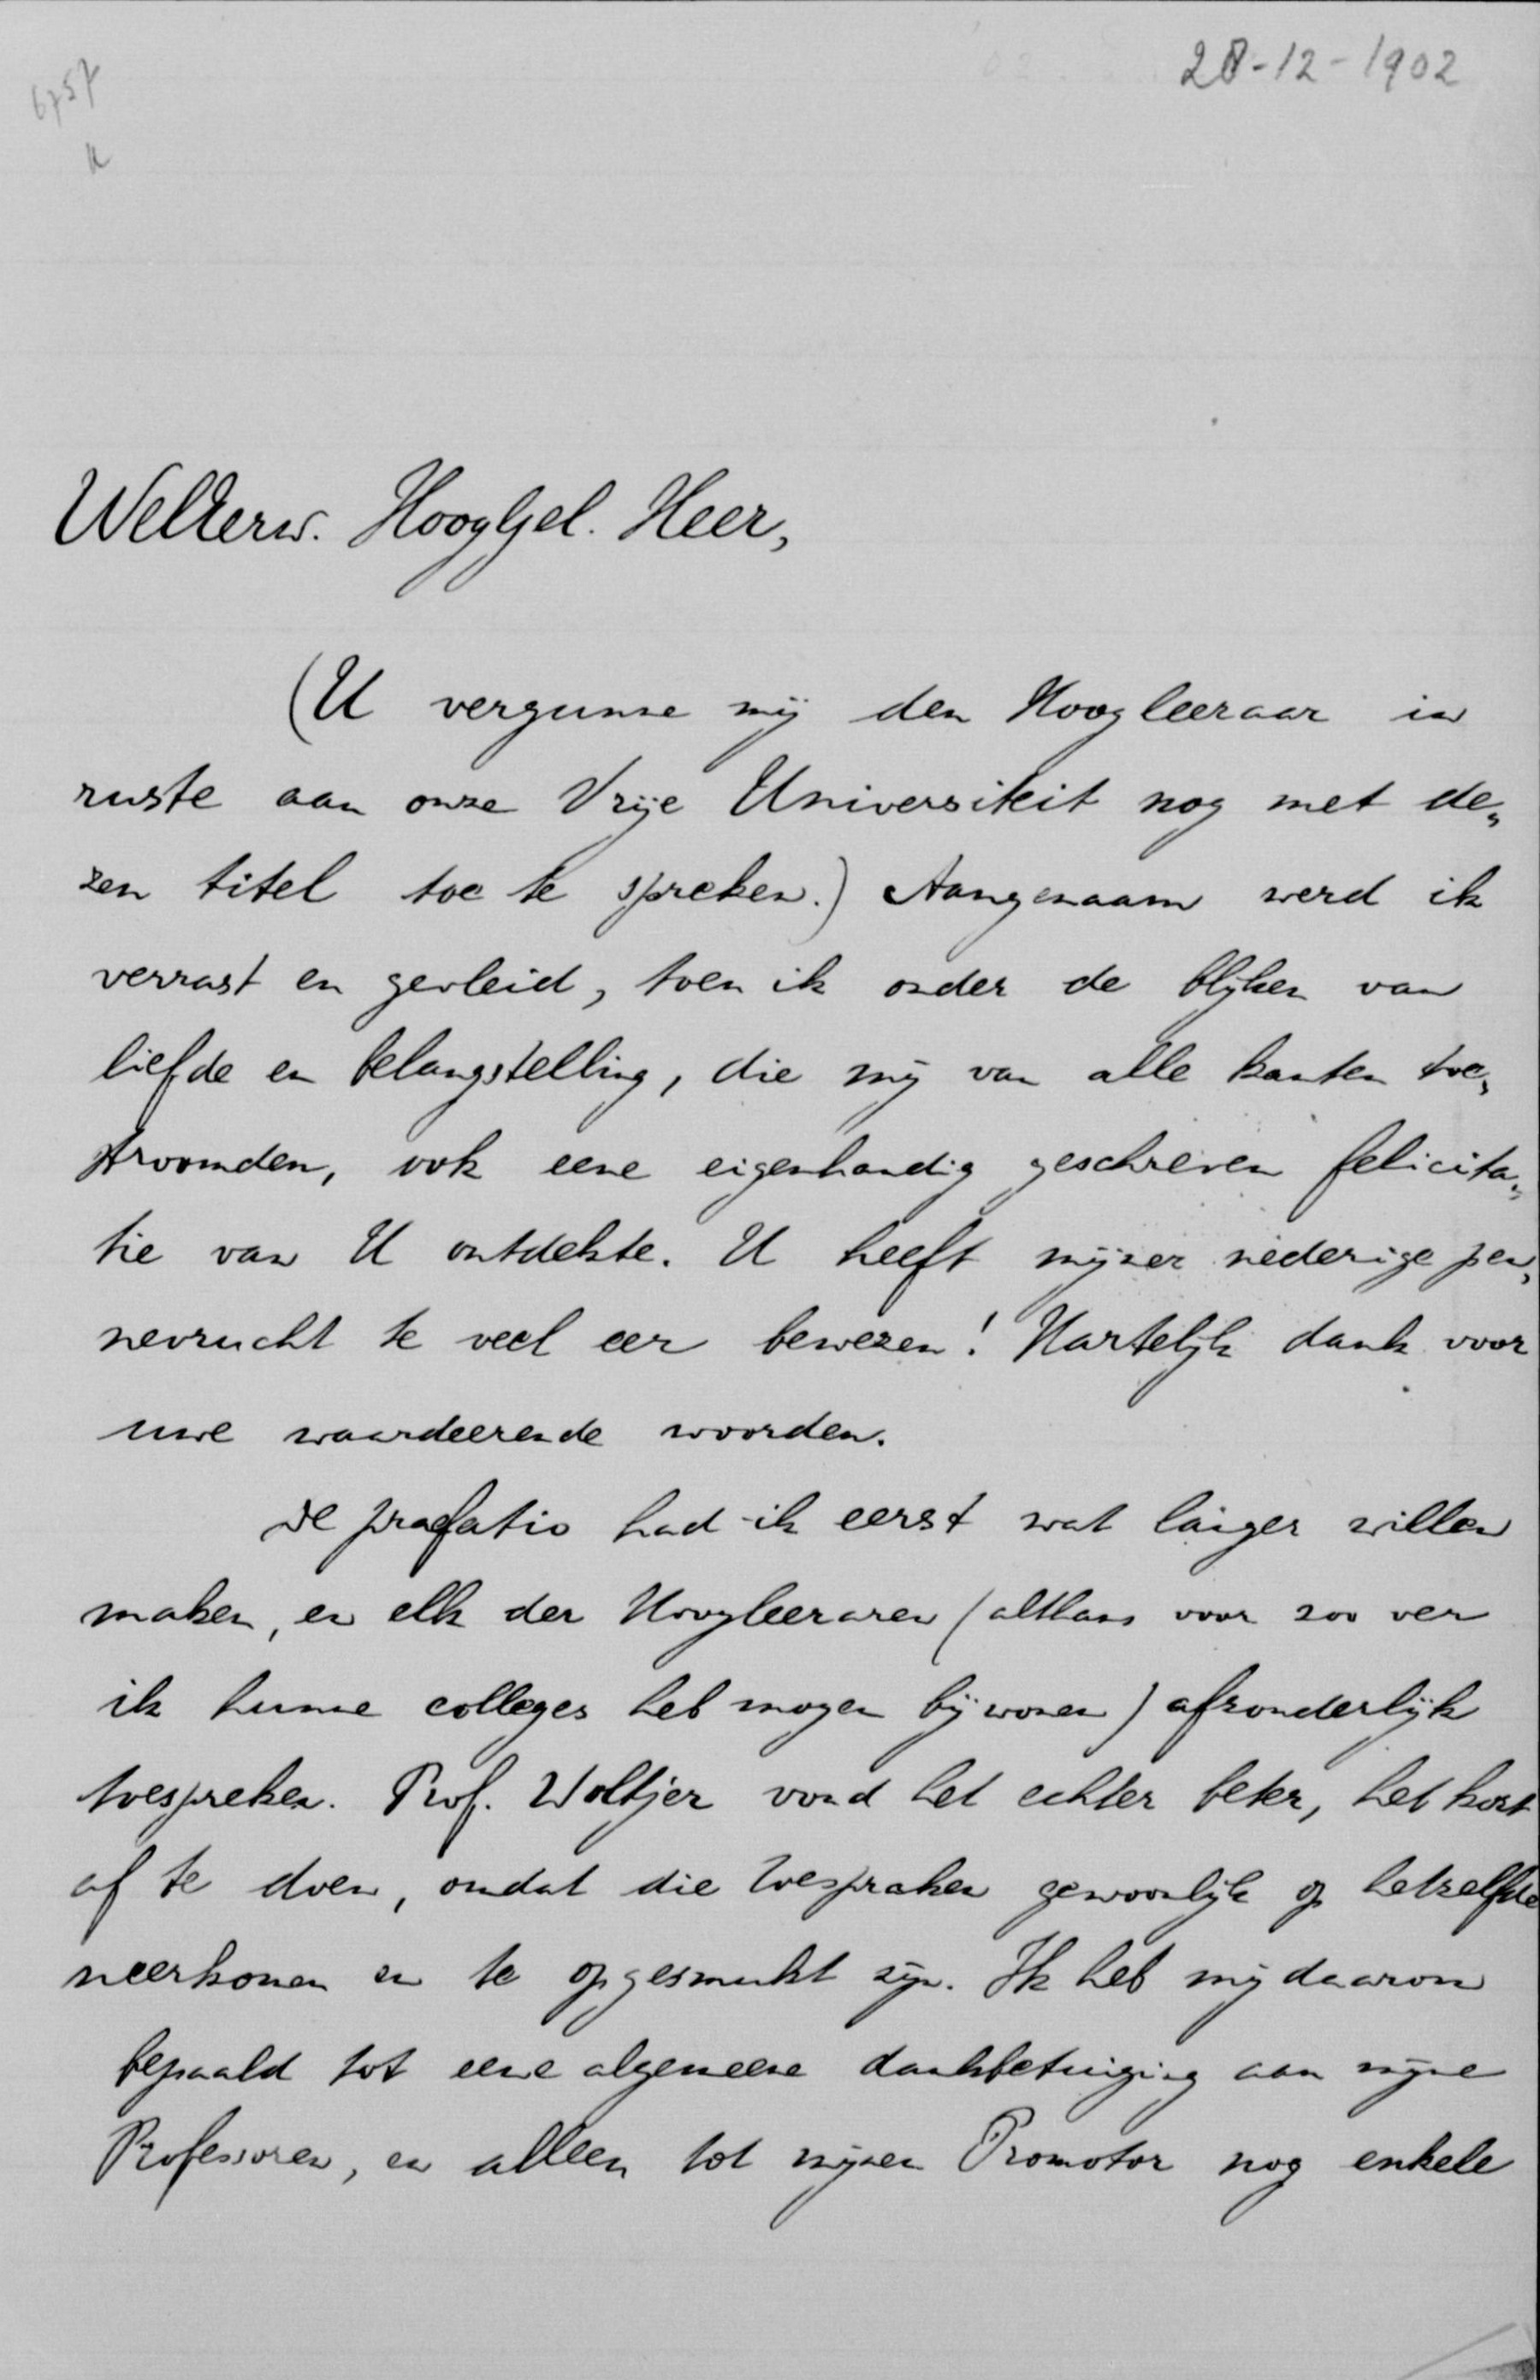 28-12-1902
6757
WelEerw. HoogGel. Heer,
(U vergunne mij den Hoogleeraar in
ruste aan onze Vrije Universiteit nog met de„
zen titel toe te spreken.) Aangenaam werd ik
verrast en gevleid, toen ik onder de blijken van
liefde en belangstelling, die mij van alle kanten toe„
stroomden, ook eene eigenhandig geschreven felicita„
tie van U ontdekte. U heeft mijner nederige pen„
nevrucht te veel eer bewezen! Hartelijk dank voor
uwe waardeerende woorden.
De praefatio had ik eerst wat langer willen
maken, en elk der Hoogleeraren (althans voor zoo ver
ik hunne colleges heb mogen bijwonen) afzonderlijk
toespreken. Prof. Woltjer vond het echter beter, het kort
af te doen, omdat die toespraken gewoonlijk op hetzelfde
neerkomen en te opgesmukt zijn. Ik heb mij daarom
bepaald tot eene algemeene dankbetuiging aan mijne
Professoren, en alleen tot mijnen Promotor nog enkele